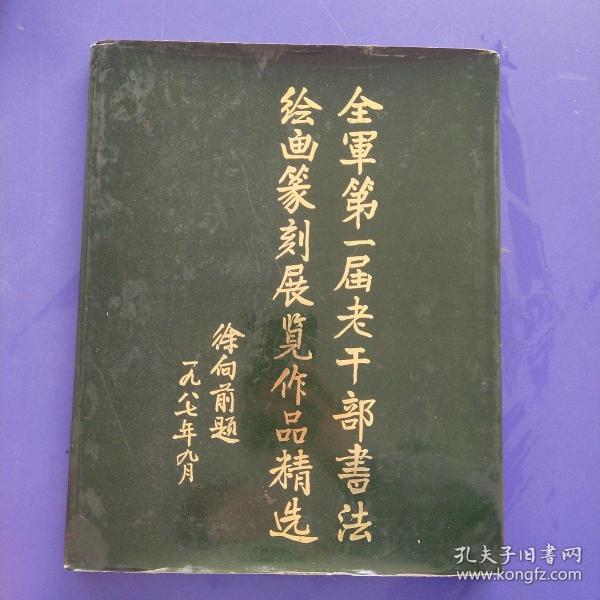 全軍第一届老干部書法
绘画篆刻展览作品精选
徐向前题
一九八七年九月
孔夫子旧書网
www.kongfz.com